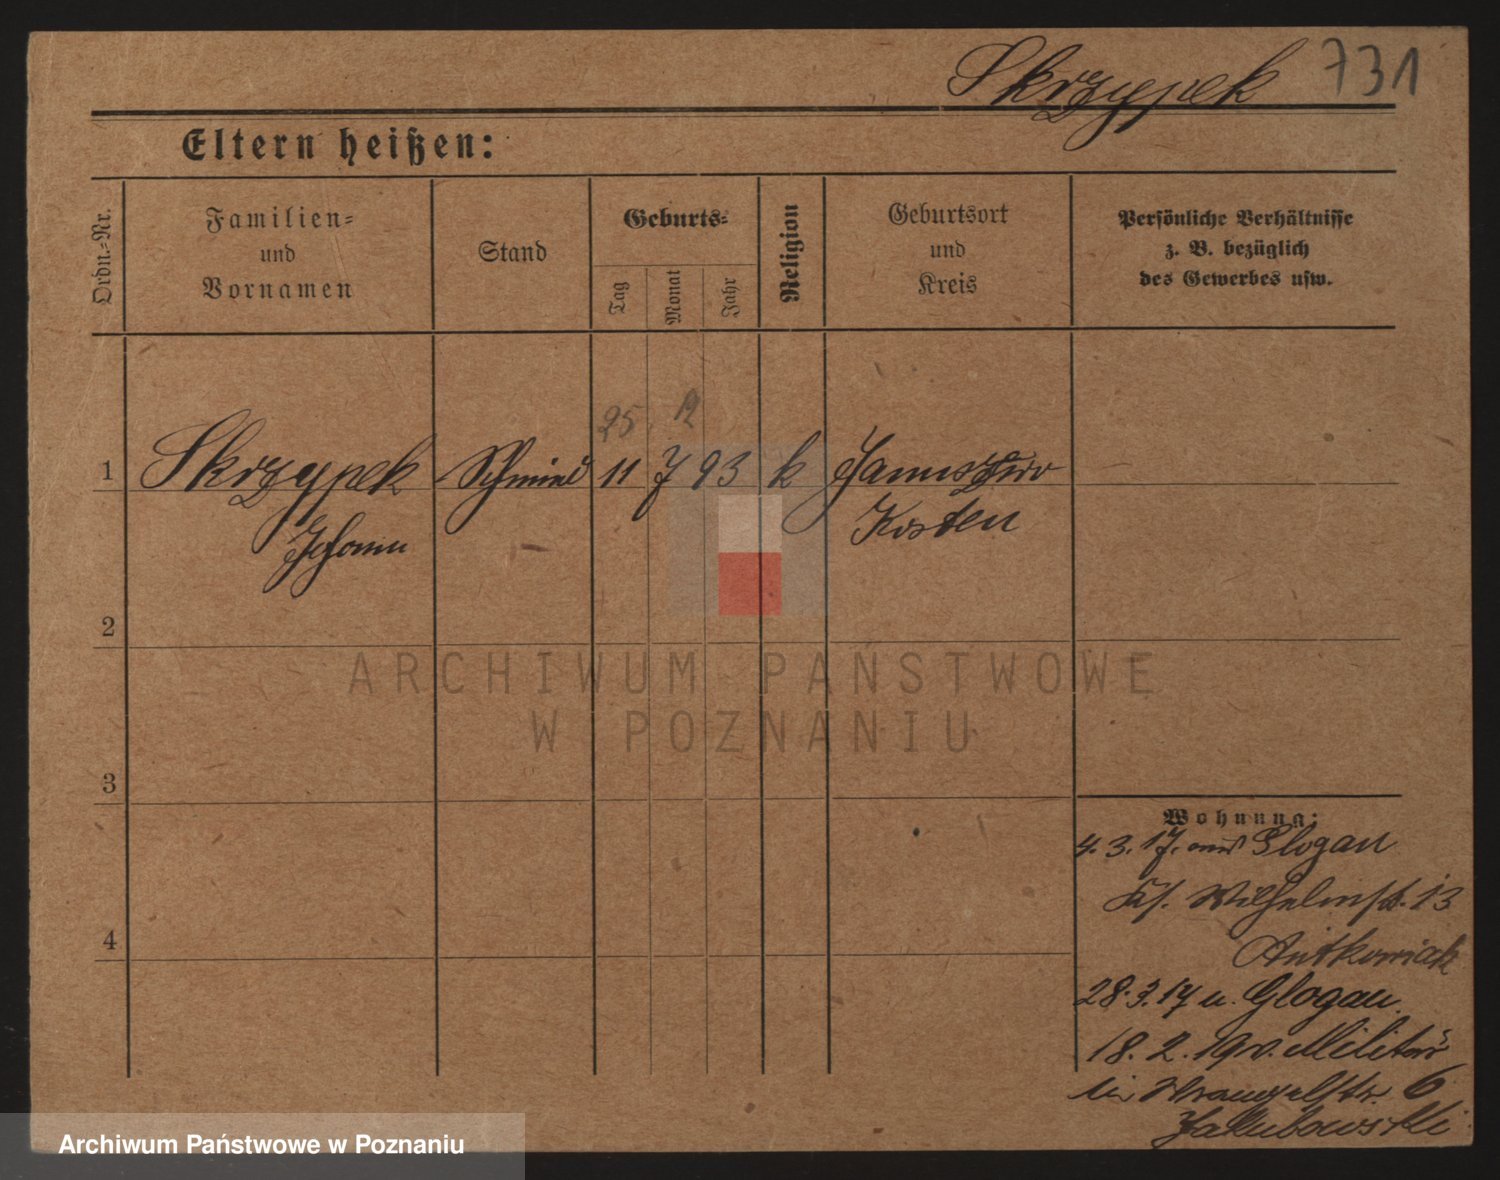 Skrzypek 731
Eltern heißen:
Ordn.-Nr.
Familien-
und
Vornamen
Stand
Geburts-
Tag
Monat
Jahr
Religion
Geburtsort
und
Kreis
Persönliche Verhältnisse
z. B. bezüglich
des Gewerbes usw.
25. 12
1 Skrzypek Schmied 11 7 93 k
Johann Kosten
2
ARCHIWUM PAŃSTWOWE
W POZNANIU
3
Wohnung:
4. 3. 17. aus Glogau
Wilhelmstr. 13
Antkowiak
4
28. 3. 17 n. Glogau.
18. 2. 19 v. Militär
in Wrangelstr. 6
Jakubowski
Archiwum Państwowe w Poznaniu